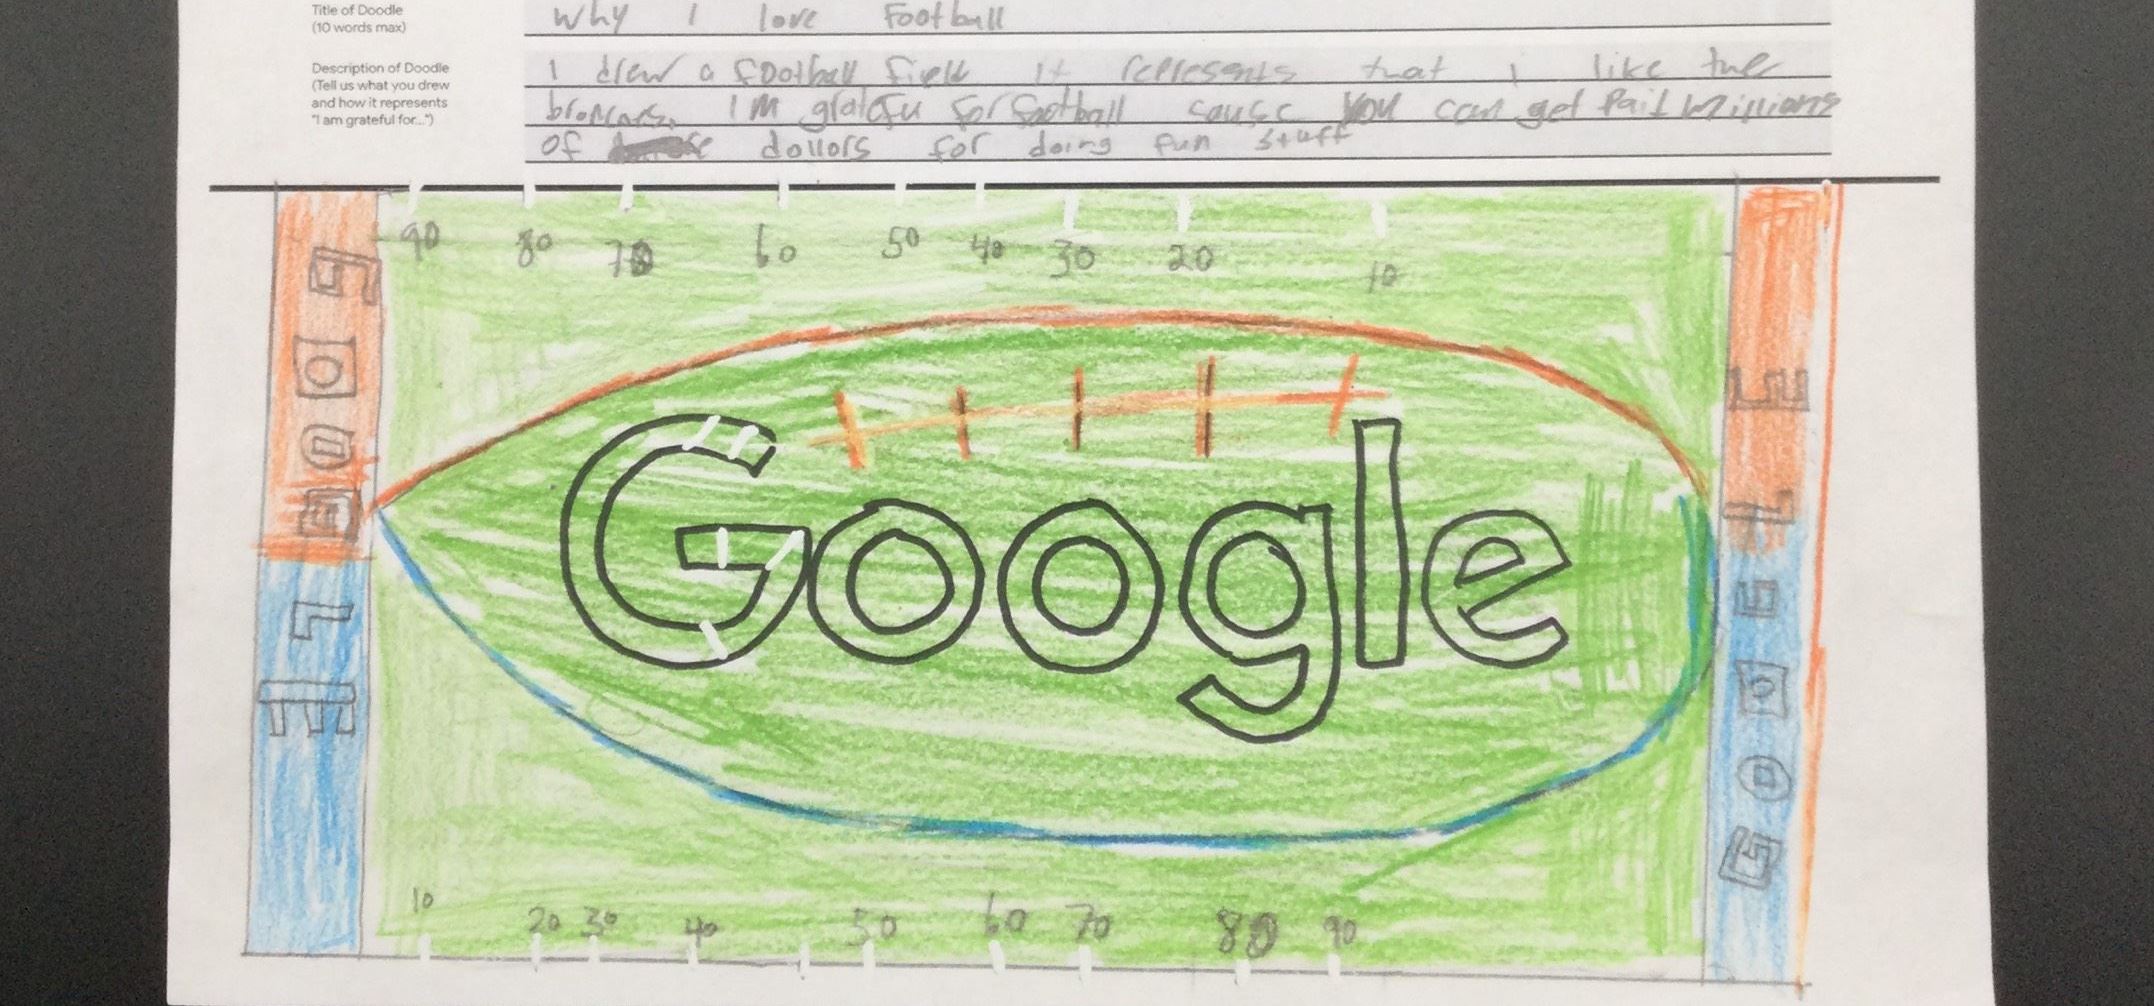 Title of Doodle
(10 words max)
why I love Football
Description of Doodle
(Tell us what you drew
and how it represents
"I am grateful for...")
I drew a football field it represents that i like the
broncos. I'm gratefu for football cause you can get Paid Millians
of dollors for doing fun stuff
90 80 70 60 50 40 30 20 10
GOOGLE
Google
GOOGLE
10 20 30 40 50 60 70 80 90